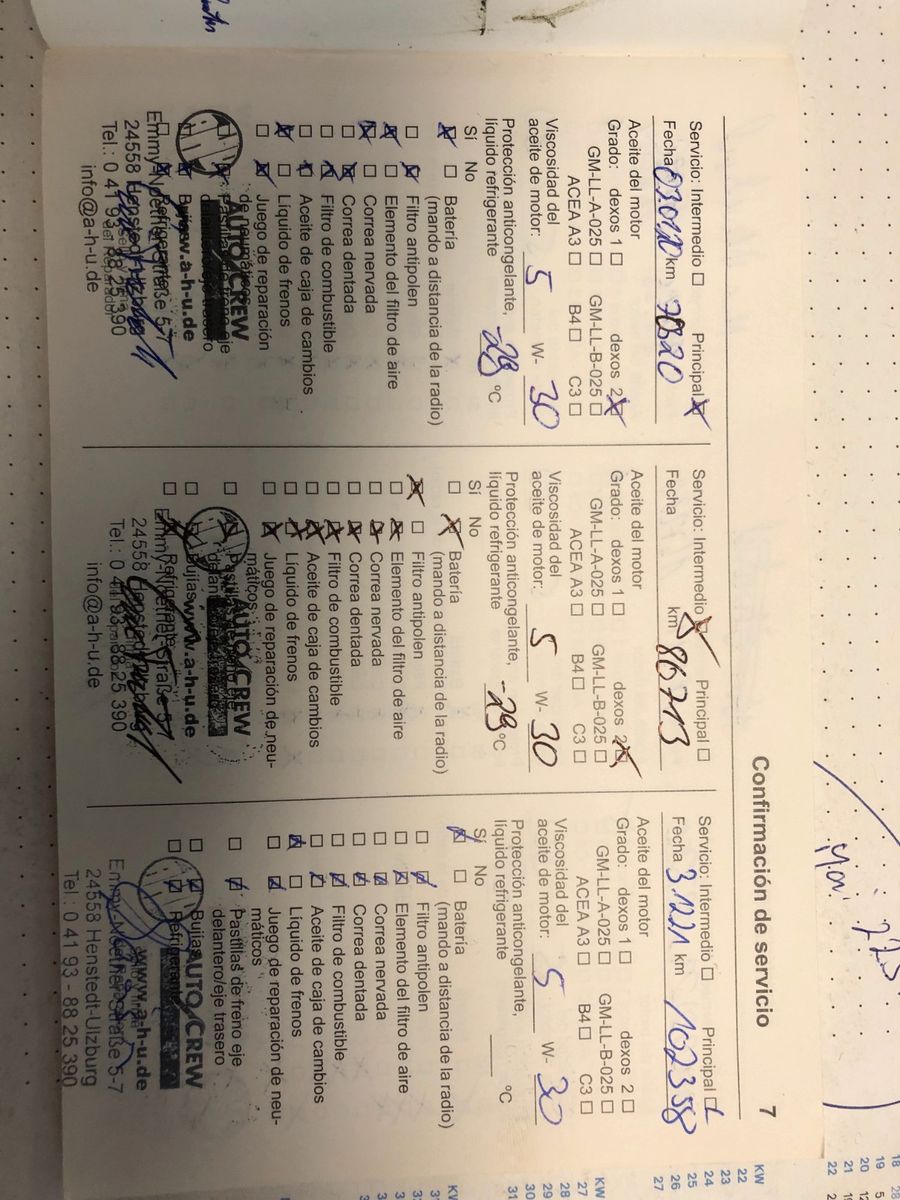 Confirmación de servicio 7
Servicio: Intermedio ☐ Principal ☒
Fecha km 70820
Aceite del motor
Grado: dexos 1 ☐ dexos 2 ☒
GM-LL-A-025 ☐ GM-LL-B-025 ☐
ACEA A3 ☐ B4 ☐ C3 ☐
Viscosidad del
aceite de motor: 5 W- 30
Protección anticongelante,
líquido refrigerante -29 °C
Sí No
☒ ☐ Batería
(mando a distancia de la radio)
☐ ☒ Filtro antipolen
☒ ☐ Elemento del filtro de aire
☒ ☐ Correa nervada
☐ ☒ Correa dentada
☐ ☒ Filtro de combustible
☐ ☒ Aceite de caja de cambios
☒ ☐ Líquido de frenos
☐ ☒ Juego de reparación
de neumáticos
AUTO CREW
www.a-h-u.de
24558 Henstedt-Ulzburg
Tel.: 0 41 93 - 88 25 390
info@a-h-u.de
Servicio: Intermedio ☒ Principal ☐
Fecha km 86713
Aceite del motor
Grado: dexos 1 ☐ dexos 2 ☒
GM-LL-A-025 ☐ GM-LL-B-025 ☐
ACEA A3 ☐ B4 ☐ C3 ☐
Viscosidad del
aceite de motor: 5 W- 30
Protección anticongelante,
líquido refrigerante -29 °C
Sí No
☐ ☒ Batería
(mando a distancia de la radio)
☒ ☐ Filtro antipolen
☐ ☒ Elemento del filtro de aire
☐ ☒ Correa nervada
☐ ☒ Correa dentada
☐ ☒ Filtro de combustible
☐ ☒ Aceite de caja de cambios
☐ ☒ Líquido de frenos
☐ ☒ Juego de reparación de neu-
máticos
AUTO CREW
www.a-h-u.de
24558 Henstedt-Ulzburg
Tel.: 0 41 93 - 88 25 390
info@a-h-u.de
Servicio: Intermedio ☐ Principal ☒
Fecha 3.12.21 km 102358
Aceite del motor
Grado: dexos 1 ☐ dexos 2 ☐
GM-LL-A-025 ☐ GM-LL-B-025 ☐
ACEA A3 ☐ B4 ☐ C3 ☐
Viscosidad del
aceite de motor: 5 W- 30
Protección anticongelante,
líquido refrigerante °C
Sí No
☒ ☐ Batería
(mando a distancia de la radio)
☐ ☒ Filtro antipolen
☐ ☒ Elemento del filtro de aire
☐ ☒ Correa nervada
☐ ☒ Correa dentada
☐ ☒ Filtro de combustible
☐ ☒ Aceite de caja de cambios
☒ ☐ Líquido de frenos
☐ ☒ Juego de reparación de neu-
máticos
☐ ☒ Pastillas de freno eje
delantero/eje trasero
☐ ☒ Bujía
AUTO CREW
www.a-h-u.de
24558 Henstedt-Ulzburg
Tel.: 0 41 93 - 88 25 390
KW
22
23
24
25
26
27
KW
27
28
29
30
31